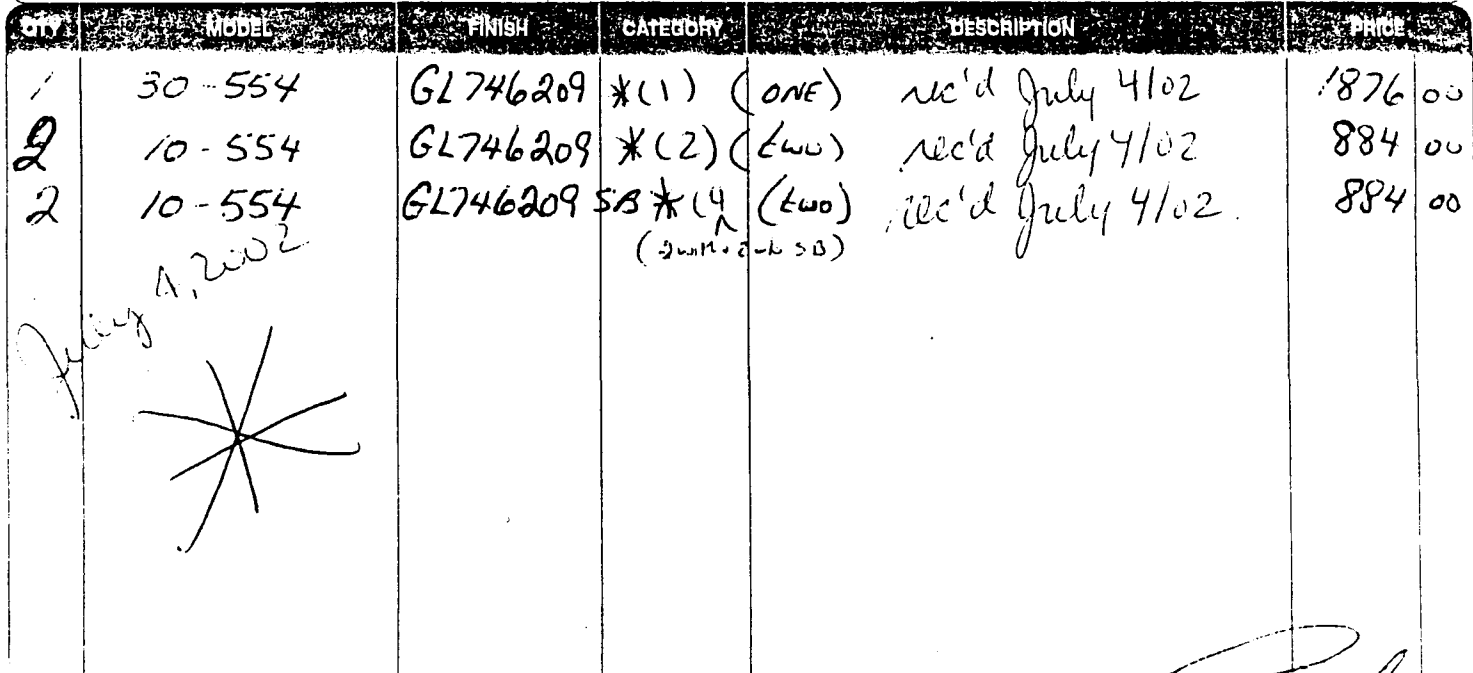 QTY. MODEL FINISH CATEGORY DESCRIPTION PRICE
1 30-554 GL746209 *(1) (ONE) rec'd July 4/02 1876 00
2 10-554 GL746209 *(2) (two) rec'd July 4/02 884 00
2 10-554 GL746209 SB *(4 (two) rec'd July 4/02. 884 00
SB)
July 4, 2002